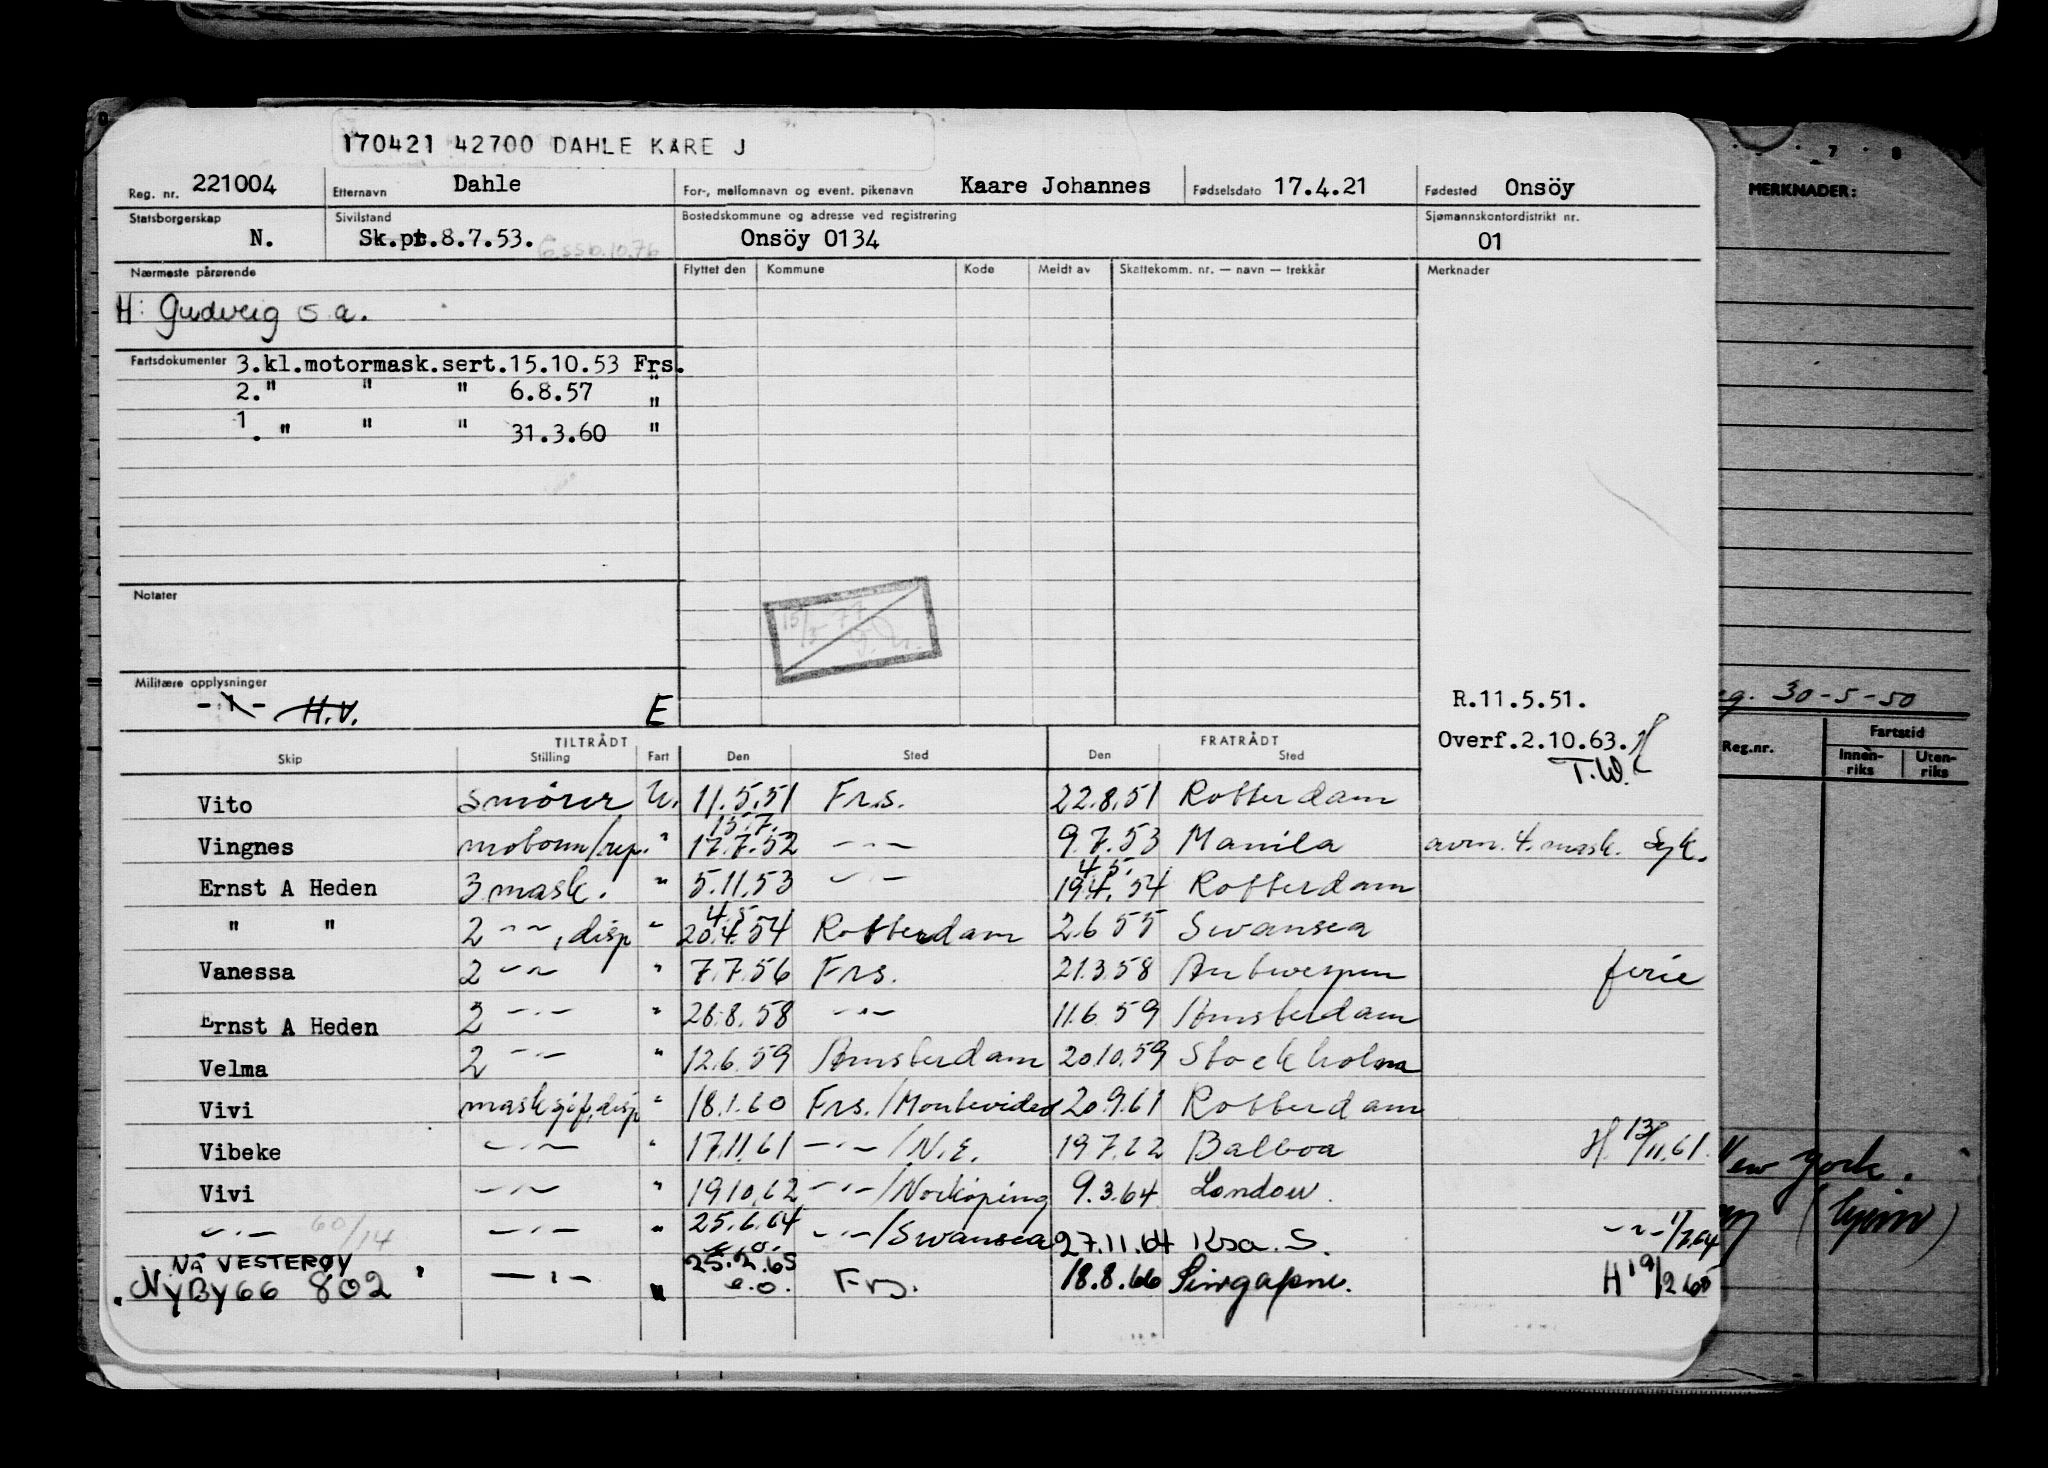 170421 42700 DAHLE KARE J
Reg. nr. 221004 Etternavn Dahle For-, mellomnavn og event. pikenavn Kaare Johannes Fødselsdato 17.4.21 Fødested Onsöy
Statsborgerskap N. Sivilstand Sk.pt.8.7.53. Bostedskommune og adresse ved registrering Onsöy 0134 Sjømannskontordistrikt nr. 01
Nærmeste pårørende Flyttet den Kommune Kode Meldt av Skattekomm. nr. — navn — trekkår Merknader
H: Gudveig s a.
Fartsdokumenter 3.kl.motormask.sert.15.10.53 Frs.
2." " " 6.8.57 "
1. " " " 31.3.60 "
Notater
Militære opplysninger
H.V. E
R.11.5.51.
Overf.2.10.63.
T.W.
TILTRÅDT FRATRÅDT
Skip Stilling Fart Den Sted Den Sted
Vito smörer U. 11.5.51 Frs. 22.8.51 Rotterdam
15.7.
Vingnes motorm/rep. " 17.7.52 —"— 9.7.53 Manila avm. 4. mask. Syk.
4.5.
Ernst A Heden 3 mask. " 5.11.53 —"— 19.4.54 Rotterdam
4.5.
" " 2 —"—, disp " 20.4.54 Rotterdam 2.6 55 Swansea
Vanessa 2 —"— " 7.7.56 Frs. 21.3.58 Antwerpen ferie
Ernst A Heden 2 —"— " 28.8.58 —"— 11.6 59 Amsterdam
Velma 2 —"— " 12.6.59 Amsterdam 20.10.59 Stockholm
Vivi masksjef, disp " 18.1.60 Frs./Montevideo 20.9.61 Rotterdam
Vibeke —"— " 17.11.61 —"—/N.E. 19.7.62 Balboa H 13/11.61.
Vivi —"— " 19.10.62 —"—/Norköping 9.3.64 London.
—"— 60/14 —"— " 25.6.64 —"—/Swansea 27.11.64 Krsa. S. —"— 1/7.64
e.o.
NÅ VESTERØY 25.2.65
NYBY66 802 —"— " e.o. Frs. 18.8.66 Singapore. H 19/2 65
7 8
MERKNADER:
30-5-50
Reg.nr. Fartstid
Innenriks Utenriks
New York.
(hjem)